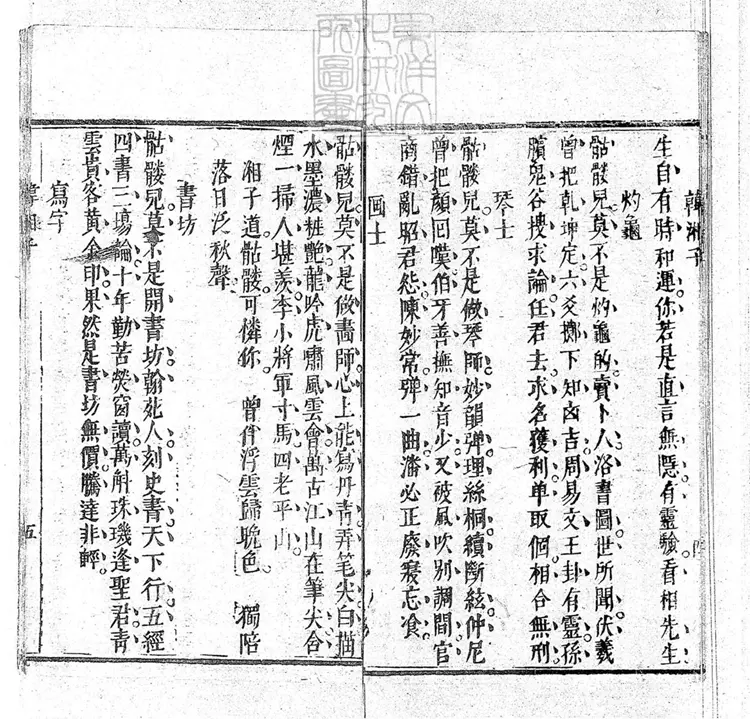 韓湘子
生自有時和運你若是直言無隱有靈驗看相先生
灼龜
骷髏兒莫不是灼龜的賣卜人洛書圖世所聞伏羲
曾把乾坤定六爻擲下知凶吉周易文王卦有靈孫
臏鬼谷搜求論任君去求名獲利单取個相合無刑
琴士
骷髏兒莫不是做琴師妙韻弹理絲桐續斷絃仲尼
曾把顔回嘆伯牙善撫知音少又被風吹別調間官
商錯亂昭君怨陳妙常弹一曲潘必正廢寢忘食
画士
骷髏兒莫不是做畵師心上能寫丹青弄笔尖白描
水墨濃粧艷龍吟虎嘯風雲會萬古江山在筆尖含
煙一掃人堪羨李小將軍寸馬四老平山
湘子道骷髏可憐你 曾伴浮雲歸晚色 獨陪
落日泛秋聲
書坊
骷髏兒莫不是開書坊翰死人刻史書天下行五經
四書三場論十年勤苦熒窗讀萬斛珠璣逢聖君青
雲貴客黃金印果然是書坊無價騰達非輕
寫字
五